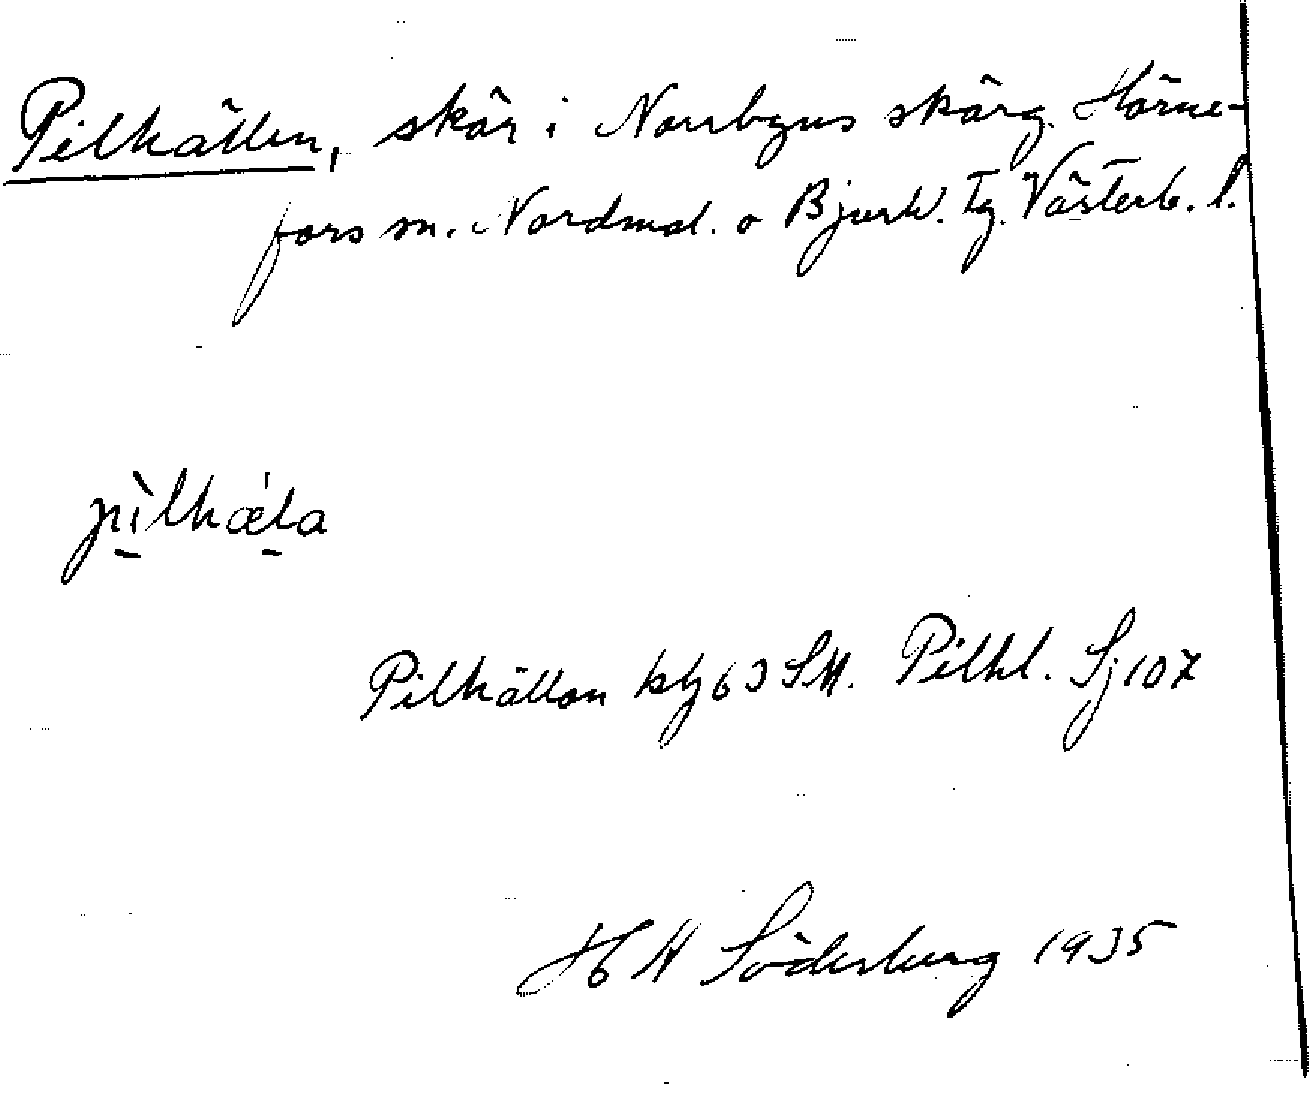 Pilkällen, skär i Norrbyns skärg. Hörne-
fors sn. Nordmal. o Bjurh. Tg. Västerb. l.
pìlhǽla
Pilhällan bl 63 SM. Pilhl. Sj 107
H N Söderberg 1935